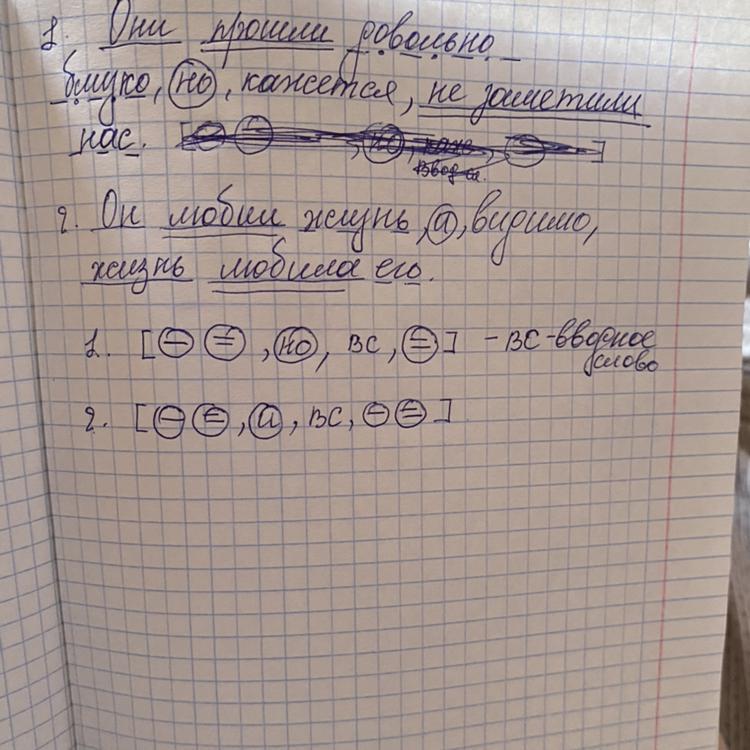 1. Они прошли довольно
близко, но, кажется, не заметили
нас. [ , но, каже, ]
Ввод сл.
2. Он любил жизнь, а, видимо,
жизнь любила его.
1. [ , но, ВС, ] - ВС-вводное
слово
2. [ , а, ВС, ]